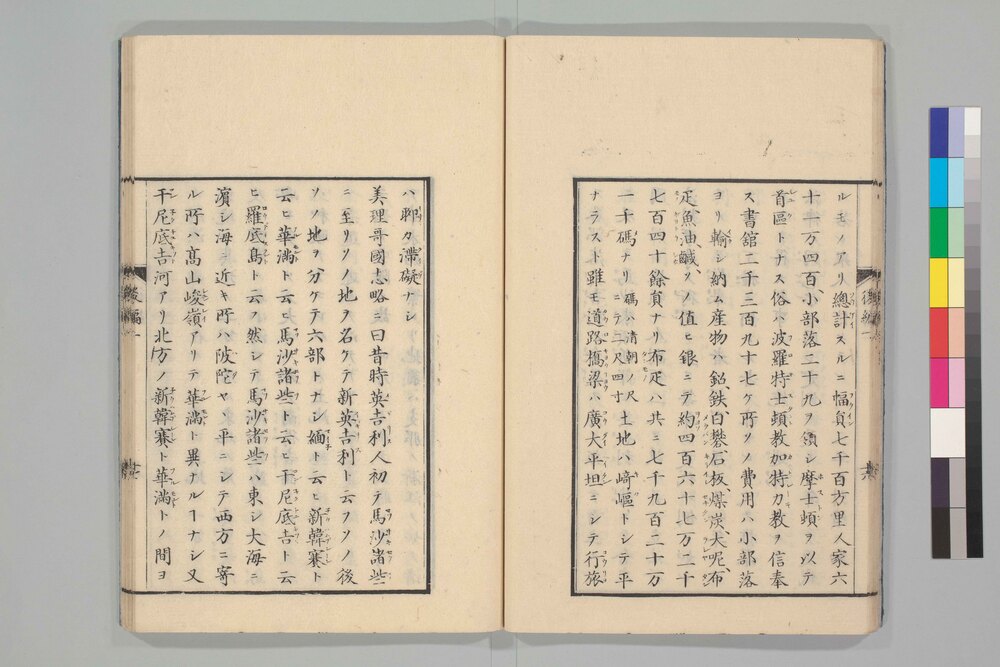 ルモノアリ總計スルニ幅員七千百方里人家六
十一万四百、小部落二十九ヲ領シ摩士頓ヲ以テ
首區トナス俗ハ波羅特士頓教加特力教ヲ信奉
ス書舘二千三百九十七ケ所ソノ費用ハ小部落
ヨリ輸シ納ム産物ハ鉛、鉄、白礬、石板、煤炭、大呢、布
疋、魚油、鹹、ソノ値ヒ銀ニテ約四百六十七万二千
七百四十餘員ナリ布疋ハ共ニ七千九百二十万
一千碼ナリ碼ハ清朝ノ尺ニテ二尺四寸土地ハ﨑嶇トシテ平
ナラスト雖モ道路橋梁ハ廣大平坦ニシテ行旅
ハ聊カ滯礙ナシ
美理哥國志略ニ曰昔時英吉利人初テ馬沙諸些
ニ至リソノ地ヲ名ケテ新英吉利ト云フソノ後
ソノ地ヲ分ケテ六部トナシ緬ト云ヒ新韓賽ト
云ヒ華滿ト云ヒ馬沙諸些ト云ヒ干尼底吉ト云
ヒ羅底島ト云フ然シテ馬沙諸些ハ東シ大海ニ
濱シ海ニ近キ所ハ陂陀ヤヽ平ニシテ西方ニ寄
ル所ハ高山峻嶺アリテ華滿ト異ナルヿナシ又
干尼底吉河アリ北方ノ新韓賽ト華滿トノ間ヨ
後編